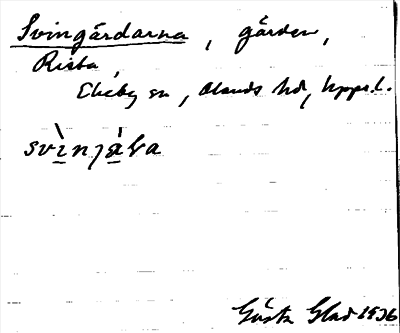 Svingårdarna, gården,
Rista,
Ekeby sn, Olands hd, Uppl.
svìnjàka
Gösta Glad 1936